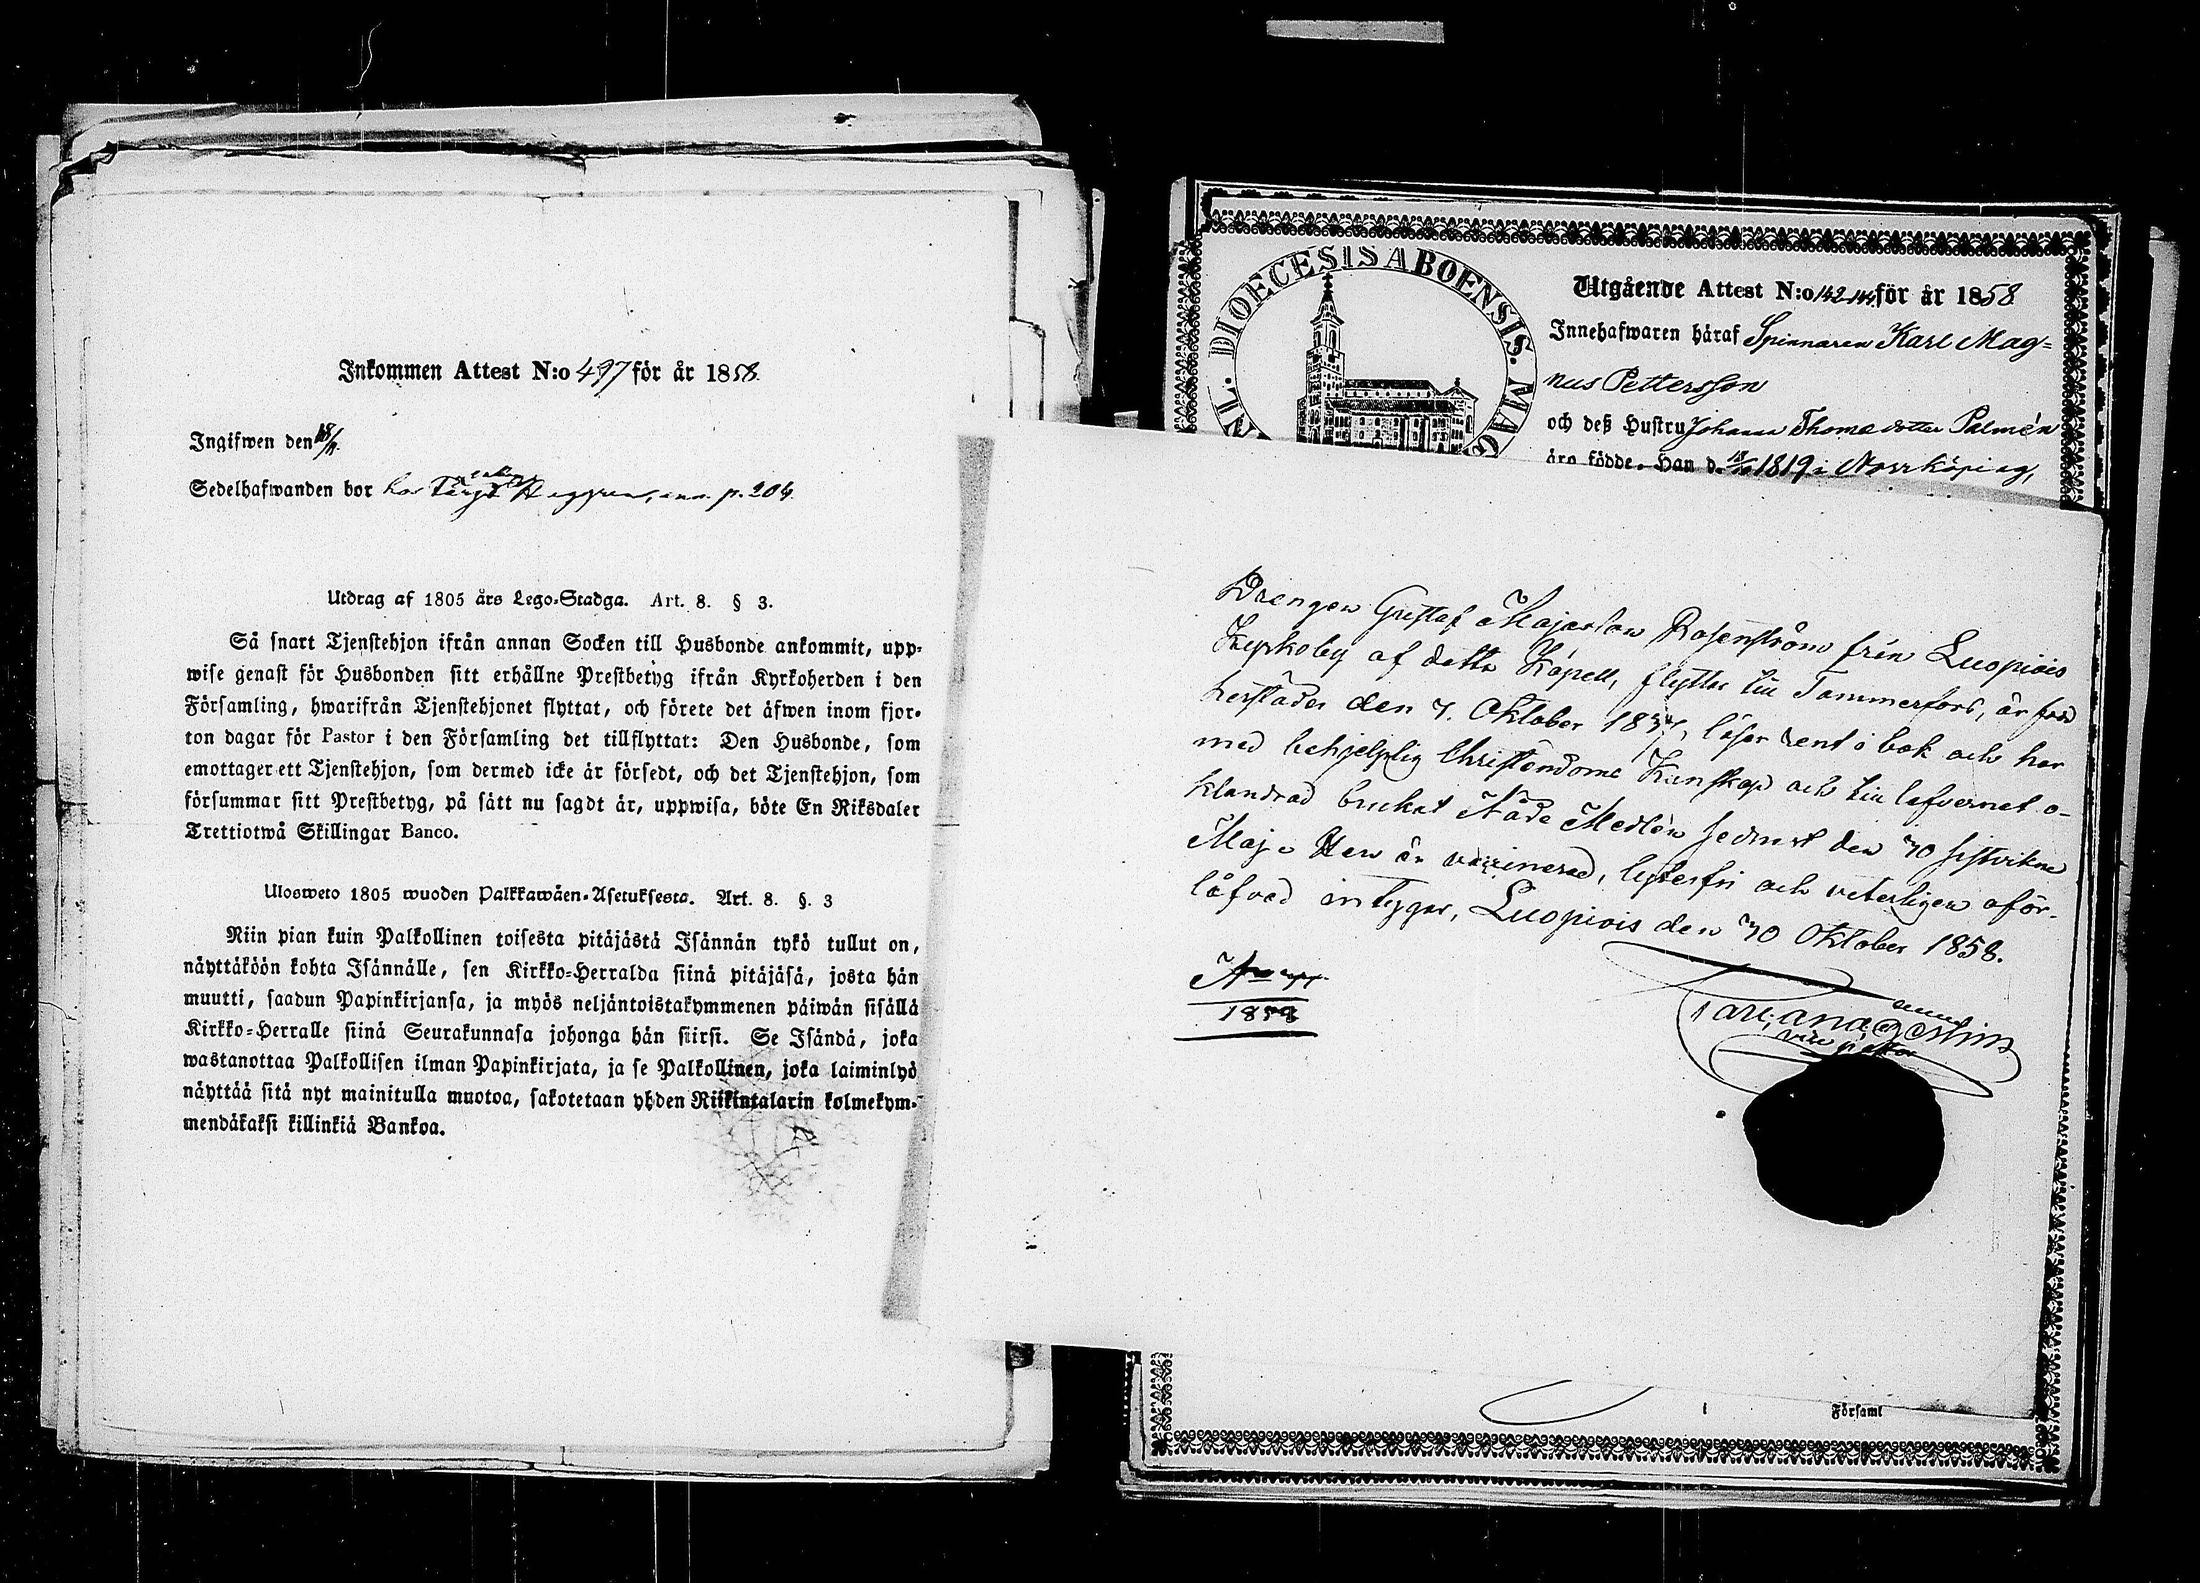 Inkommen Attest N:o 497 för år 1858.
Ingifwen den 18/11.
Sedelhafwanden bor hos Heggren, ann. p. 204.
Utdrag af 1805 års Lego-Stadga. Art. 8. § 3.
Så snart Tjenstehjon ifrån annan Socken till Husbonde ankommit, upp-
wise genast för Husbonden sitt erhållne Prestbetyg ifrån Kyrkoherden i den
Församling, hwarifrån Tjenstehjonet flyttat, och förete det äfwen inom fjor-
ton dagar för Pastor i den Församling det tillflyttat: Den Husbonde, som
emottager ett Tjenstehjon, som dermed icke är försedt, och det Tjenstehjon, som
försummar sitt Prestbetyg, på sätt nu sagdt är, uppwisa, böte En Riksdaler
Trettiotwå Skillingar Banco.
Ulosweto 1805 wuoden Palkkawäen-Asetuksesta. Art. 8. §. 3
Niin pian kuin Palkollinen toisesta pitäjästä Isännän tykö tullut on,
näyttäköön kohta Isännälle, sen Kirkko-Herralda siinä pitäjäsä, josta hän
muutti, saadun Papinkirjansa, ja myös neljäntoistakymmenen päiwän sisällä
Kirkko-Herralle siinä Seurakunnasa johonga hän siirsi. Se Isändä, joka
wastanottaa Palkollisen ilman Papinkirjata, ja se Palkollinen, joka laiminlyö
näyttää sitä nyt mainitulla muotoa, sakotetaan yhden Riikintalarin kolmekym-
mendäkaksi killinkiä Bankoa.
DIOECESIS ABOENSIS. MAG
Utgående Attest N:o 142-144 för år 1858
Innehafwaren häraf Spinnaren Karl Mag=
nus Pettersson
och deß Hustru Johanna Thomasdotter Palmén
äro födde. Han d. 1819 i Norrköping,
Drengen Gustaf Majasson Rosenström från Luopiois
Kyrkoby af detta Kapell, flyttar till Tammerfors, är född
herstädes den 7. Oktober 1837, läser rent i bok och har
med behjelplig Christendoms Kunskap och till lefvernet o-
klandrad brukat Nåde Medlen sednast den 30 sistvikne
Maji Han är vaccinerad, lyterfri och veterligen oför-
låfvad intygar, Luopiois den 30 Oktober 1858.
1858
vice pastor
Församl